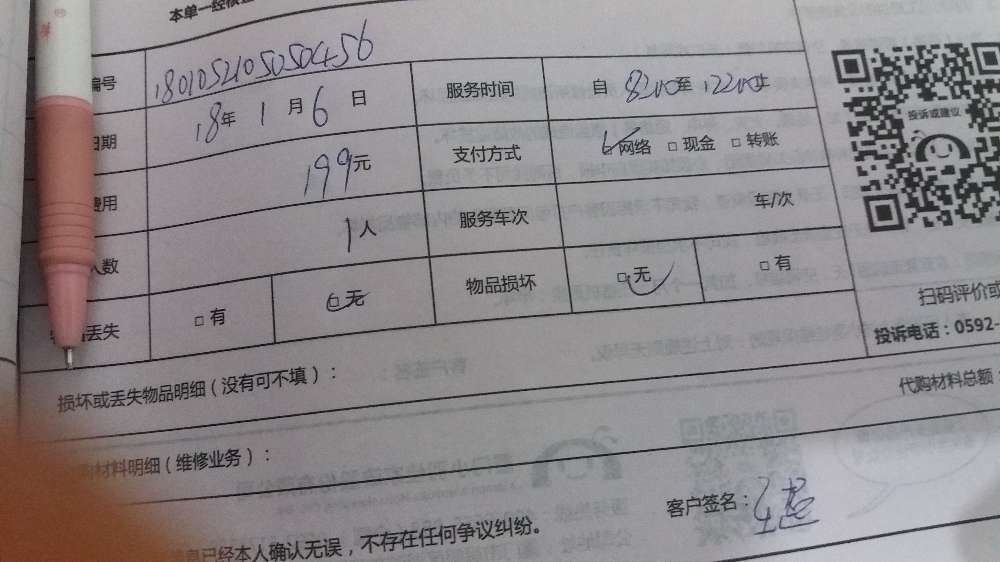 本单一经核
编号 1801052105050456
日期 18年 1月 6日 服务时间 自 8:00至 12:00止
费用 199元 支付方式 □网络 □现金 □转账
人数 1人 服务车次 车/次
丢失 □有 □无 物品损坏 □无 □有
投诉或建议
扫码评价或
投诉电话：0592-
损坏或丢失物品明细（没有可不填）：
代购材料总额：
材料明细（维修业务）：
客户签名：
息已经本人确认无误，不存在任何争议纠纷。